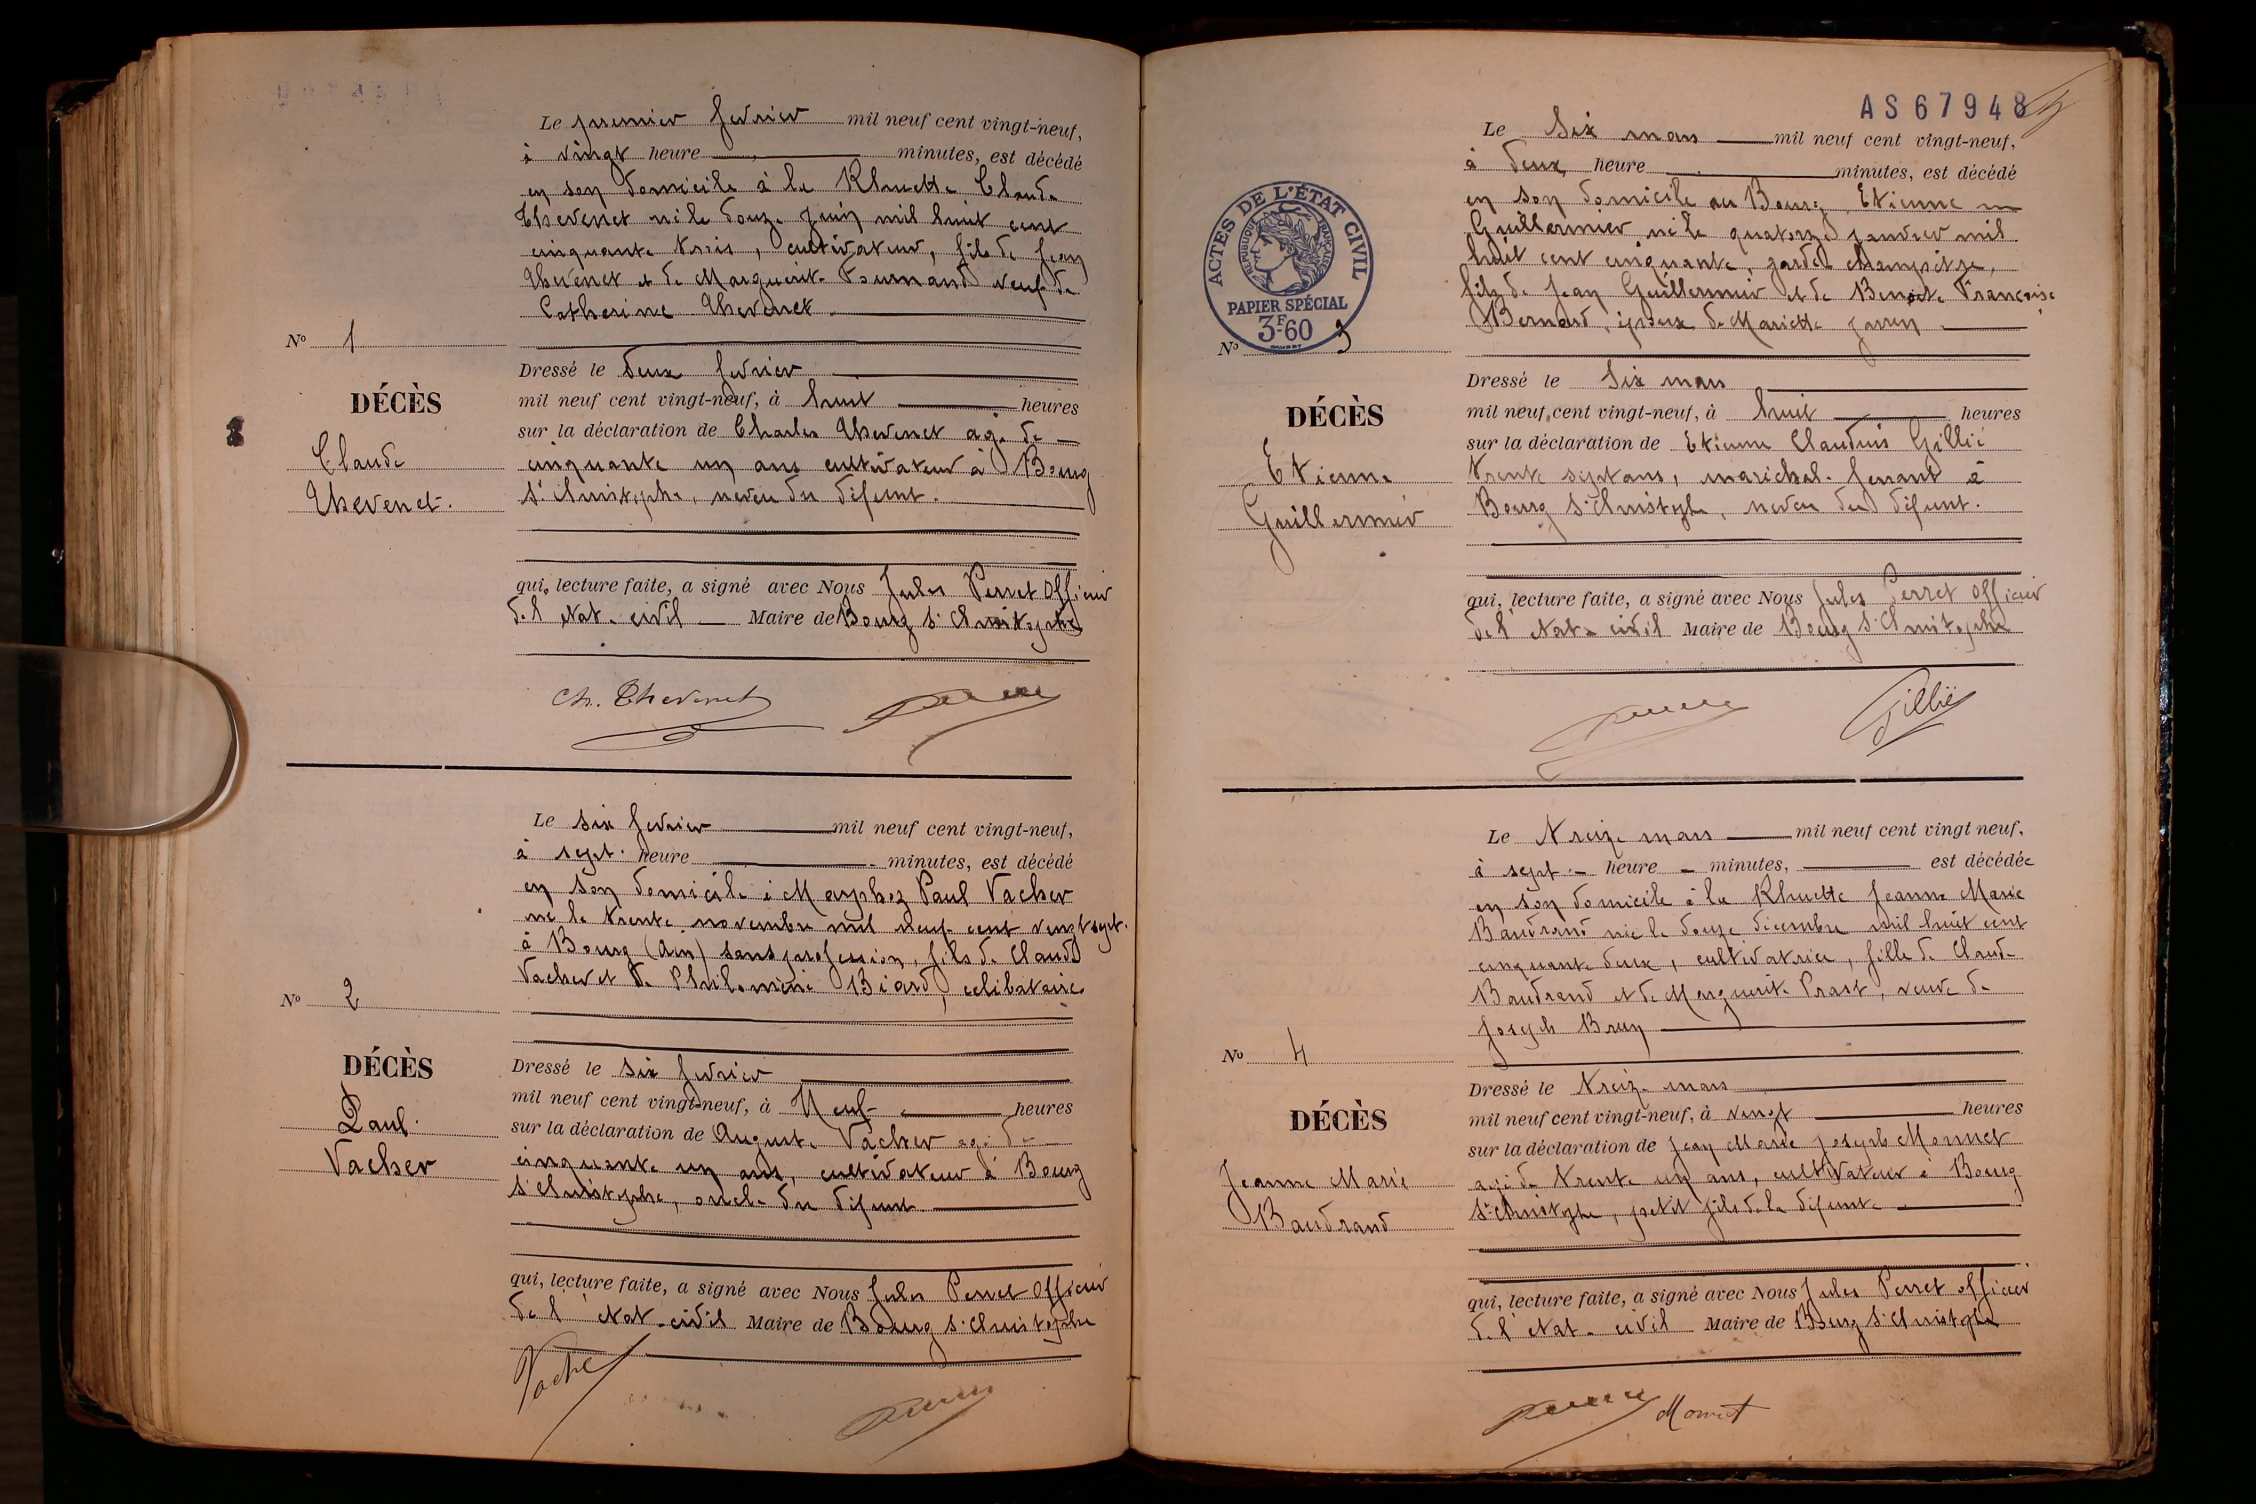 Le premier fevrier mil neuf cent vingt-neuf,
à vingt heure minutes, est décédé
en son domicile à la Rhuette Claude
Thevenet né le douze juin mil huit cent
cinquante trois, cultivateur, fils de Jean
Thevenet et de Marguerite Fournand veuf de
Catherine Thevenet
No 1
DÉCÈS
Claude
Thevenet.
Dressé le deux fevrier
mil neuf cent vingt-neuf, à huit heures
sur la déclaration de Charles Thevenet agé de
cinquante un ans cultivateur à Bourg
St Christophe, neveu du défunt.
qui, lecture faite, a signé avec Nous Jules Perret Officier
de l'état civil Maire de Bourg St Christophe
Ch. Thevenet
Le six fevrier mil neuf cent vingt-neuf,
à sept heure minutes, est décédé
en son domicile à Marphoz Paul Vacher
né le trente novembre mil neuf cent vingt sept
à Bourg (Ain) sans profession, fils de Claude
Vacher et de Philomène Biard, celibataire
No 2
DÉCÈS
Paul
Vacher
Dressé le six fevrier
mil neuf cent vingt-neuf, à Neuf heures
sur la déclaration de Auguste Vacher agé de
cinquante un ans, cultivateur à Bourg
St Christophe, oncle du défunt
qui, lecture faite, a signé avec Nous Jules Perret Officier
de l'état civil Maire de Bourg St Christophe
Vacher
AS67948
Le Six mars mil neuf cent vingt-neuf,
à deux heure minutes, est décédé
en son domicile au Bourg Etienne
Guillermier né le quatorze janvier mil
huit cent cinquante, garde champêtre,
fils de Jean Guillermier et de Benoite Françoise
Bernard, époux de Mariette
ACTES DE L'ÉTAT CIVIL
RÉPUBLIQUE FRANÇAISE
PAPIER SPÉCIAL
3F-60
No 3
DÉCÈS
Etienne
Guillermier
Dressé le Six mars
mil neuf cent vingt-neuf, à huit heures
sur la déclaration de Etienne Claudius Gillié
trente sept ans, maréchal ferrant à
Bourg St Christophe, neveu du défunt.
qui, lecture faite, a signé avec Nous Jules Perret Officier
de l'état civil Maire de Bourg St Christophe
Gillié
Le treize mars mil neuf cent vingt neuf,
à sept heure minutes, est décédée
en son domicile à la Rhuette Jeanne Marie
Baudrand née le douze décembre mil huit cent
cinquante deux, cultivatrice, fille de Claude
Baudrand et de Marguerite Prost, veuve de
Joseph Brun
No 4
DÉCÈS
Jeanne Marie
Baudrand
Dressé le treize mars
mil neuf cent vingt-neuf, à vingt heures
sur la déclaration de Jean Marie Joseph Monnet
agé de trente un ans, cultivateur à Bourg
St Christophe, petit fils de la défunte
qui, lecture faite, a signé avec Nous Jules Perret officier
de l'état civil Maire de Bourg St Christophe
Monnet